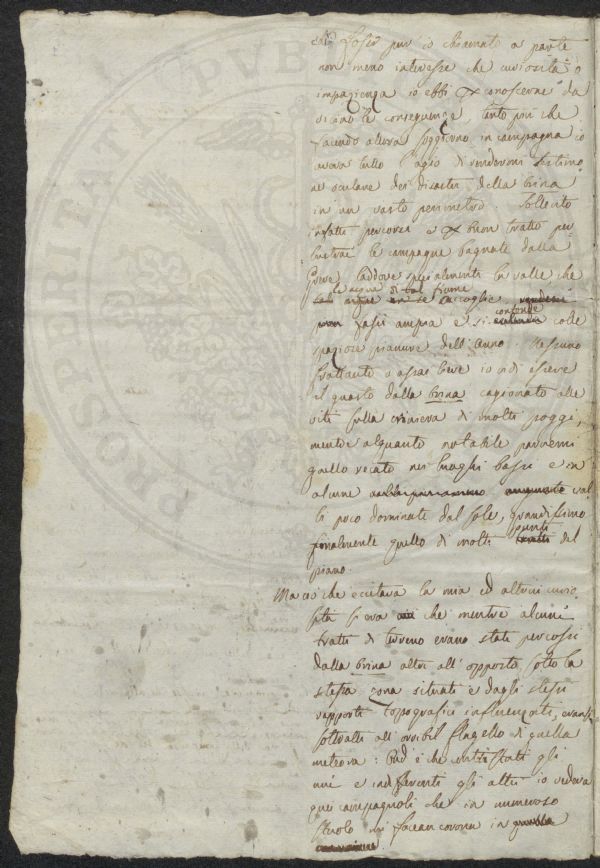 fossi pur io chiamato a parte
non meno interesse che curiosità o
impazienza io ebbi di conoscerne da
vicino le conseguenze, tanto più che
facendo allora soggiorno in campagna io
aveva tutto l'agio di rendermi testimo
ne oculare dei disastri della brina
in un vasto perimetro. Sollecito
infatti percorsi e buon tratto per
lustrai le campagne bagnate dalla
Greve, laddove specialmente la valle che
le acque di tal fiume
accoglie
fassi ampia e si confonde colle
spaziose pianure dell'Arno. Nessuno
frattanto o assai lieve io vidi essere
il guasto dalla brina cagionato alle
viti sulla criniera di molti poggi,
mentre alquanto notabile parvemi
quello recato nei luoghi bassi e in
alcune val
li poco dominate dal sole, grandissimo
finalmente quello di molti punti del
piano.
Ma ciò che eccitava la mia ed altrui curio
sità si era che mentre alcuni
tratti di terreno erano stati percossi
dalla brina altri all'opposto sotto la
stessa zona situati e dagli stessi
rapporti topografici influenzati, eransi
sottratti all'orribil flagello di quella
meteora: che contristati gli
uni e indifferenti gli altri io vedeva
quei campagnoli che in numeroso
stuolo mi facean corona in
PROSPERITATI PVB